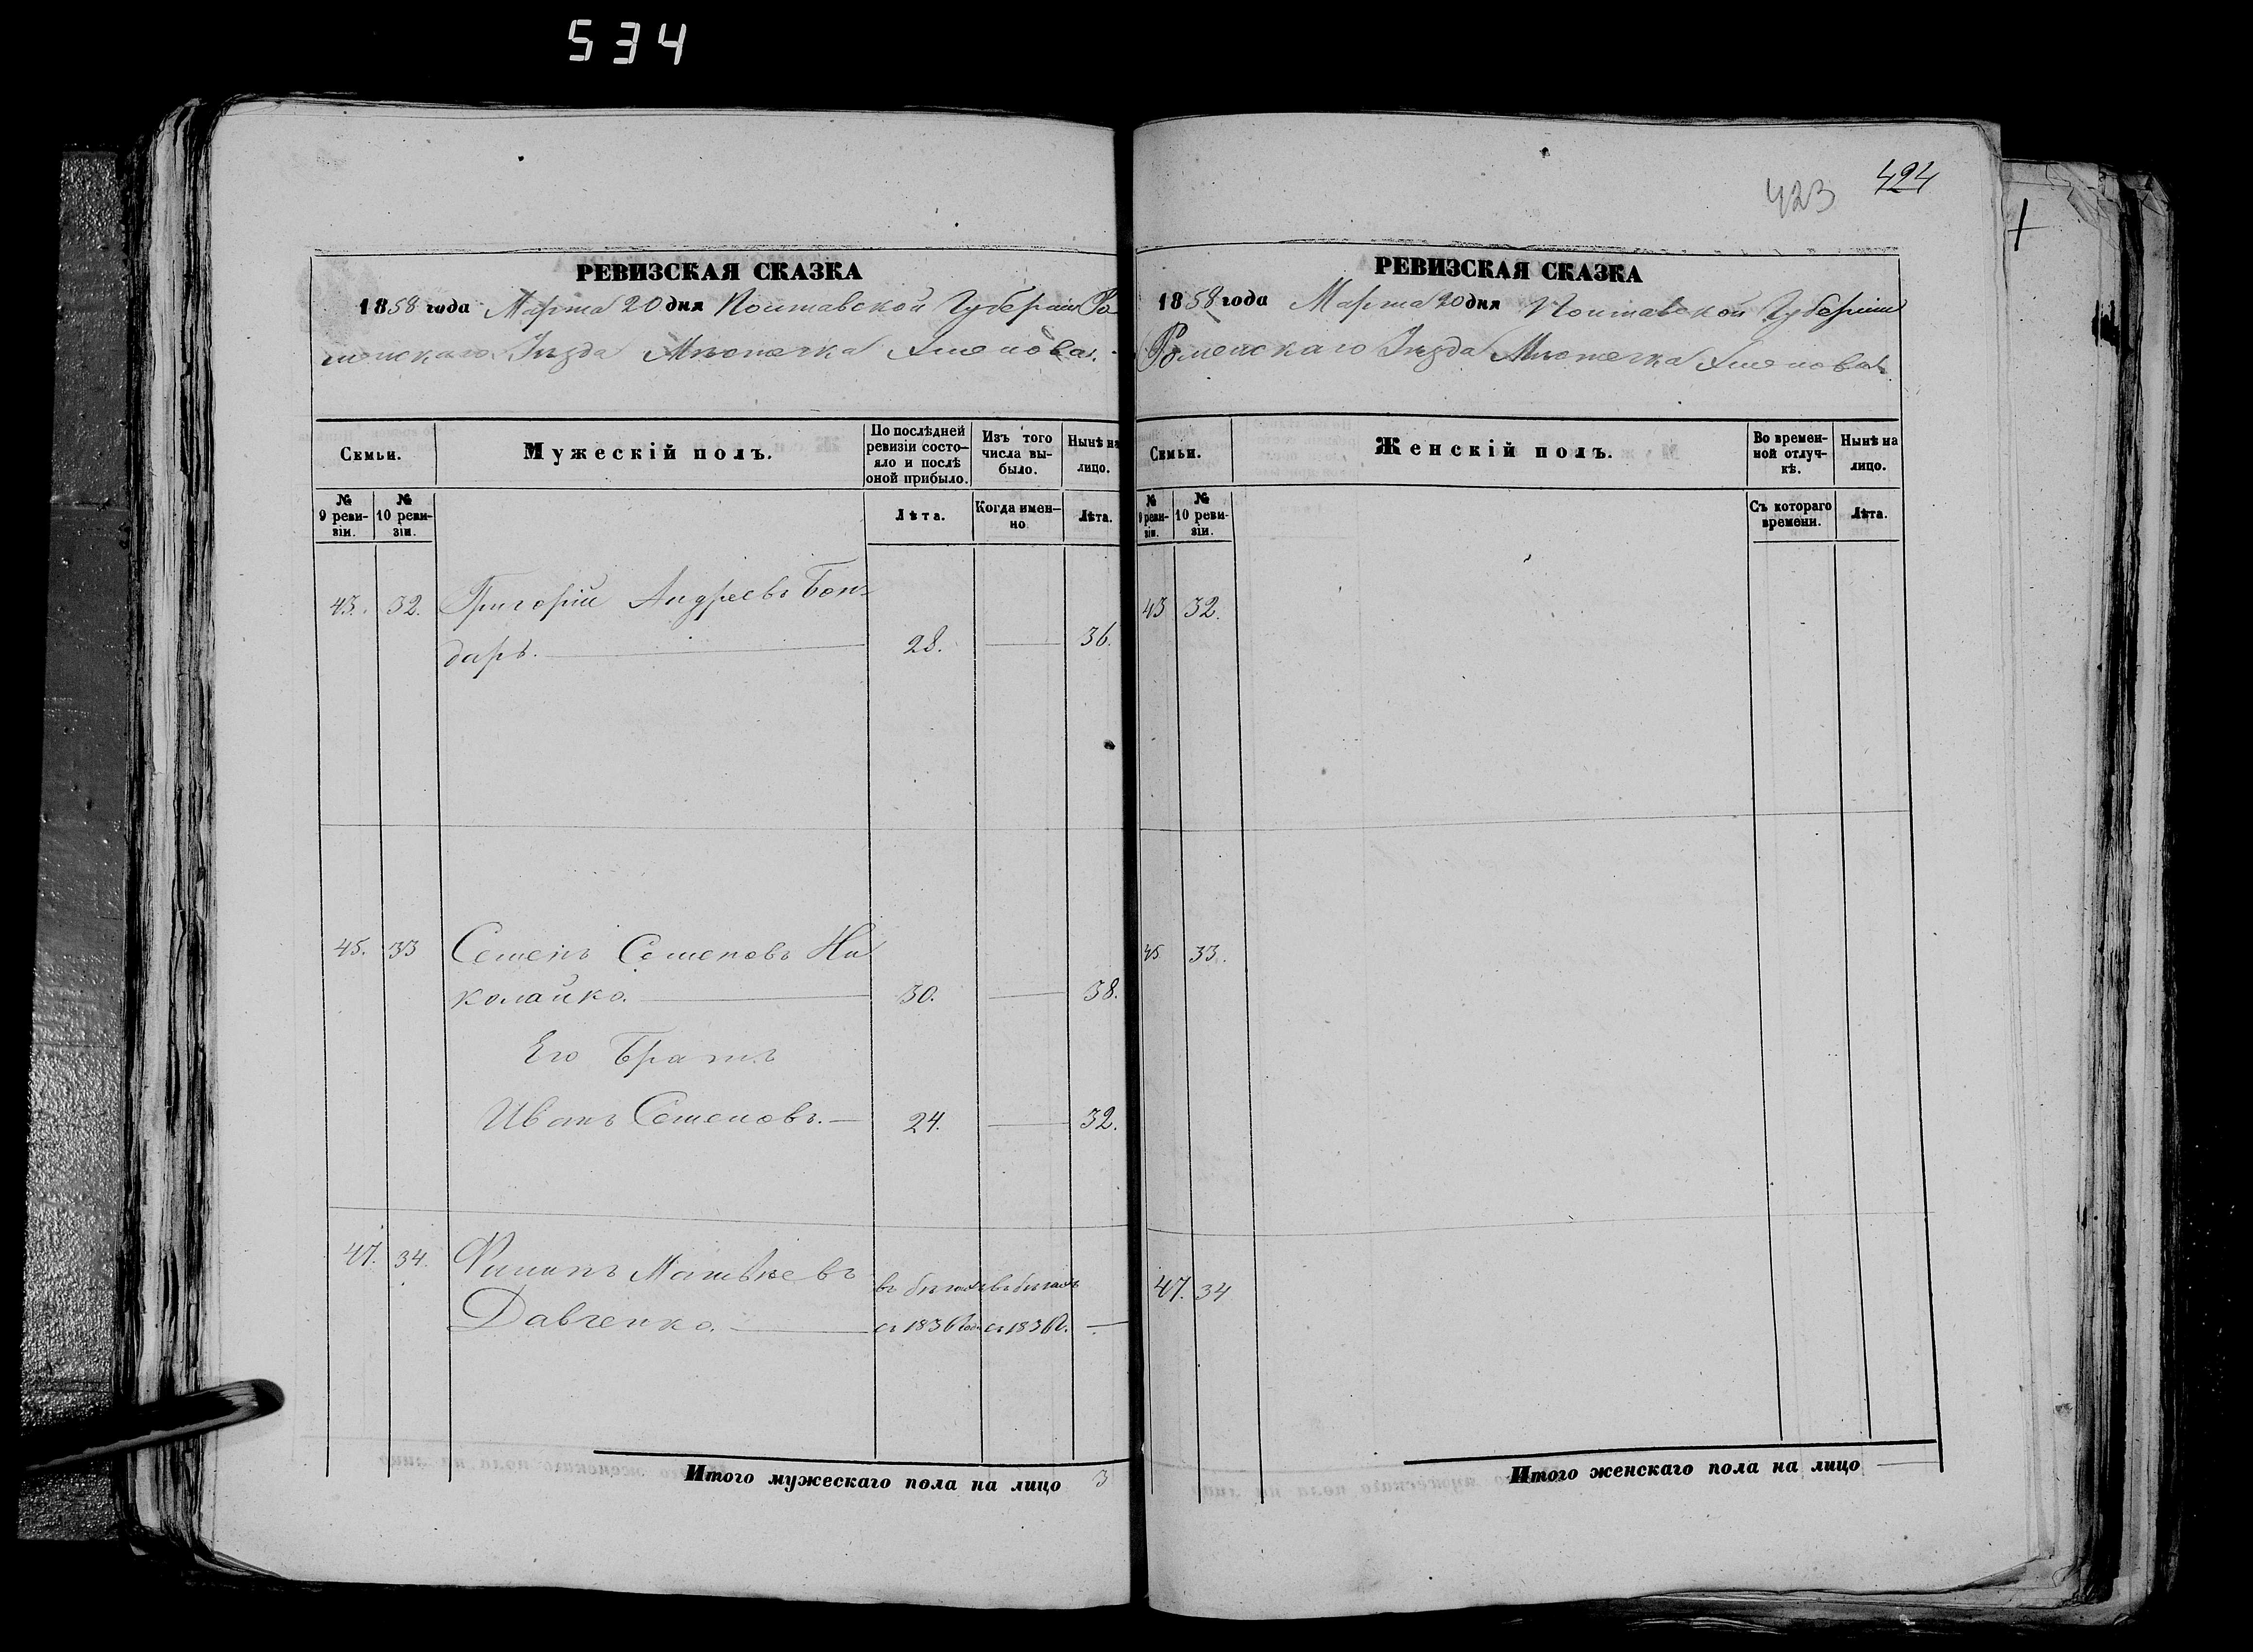 534
РЕВИЗСКАЯ СКАЗКА
1858 года Марта 20 дня Полтавской Губерніи Ро
менскаго Уѣзда Мѣстечка
Семьи.
Мужескій полъ.
По послѣдней ревизіи состояло и послѣ оной прибыло.
Изъ того числа выбыло.
Нынѣ на лицо.
№ 9 ревизіи.
№ 10 ревизіи.
Лѣта.
Когда именно
Лѣта.
43. 32. Григорій Андреевъ Бон
даръ. 28. 36.
45. 33 Семенъ Семеновъ Ни
колайко. 30. 38.
Его Братъ
Иванъ Семеновъ. 24. 32.
47. 34. Филипъ Матвѣевъ
въ бѣгахъ въ бѣгахъ
Давченко. съ 1836 года съ 1836 г.
Итого мужескаго пола на лицо 3
423
424
РЕВИЗСКАЯ СКАЗКА
1858 года Марта 20 дня Полтавской Губерніи
Роменскаго Уѣзда Мѣстечка
Семьи.
Женскій полъ.
Во временной отлучкѣ.
Нынѣ на лицо.
№ 9 ревизіи.
№ 10 ревизіи.
Съ котораго времени.
Лѣта.
43 32.
45 33.
47. 34
Итого женскаго пола на лицо